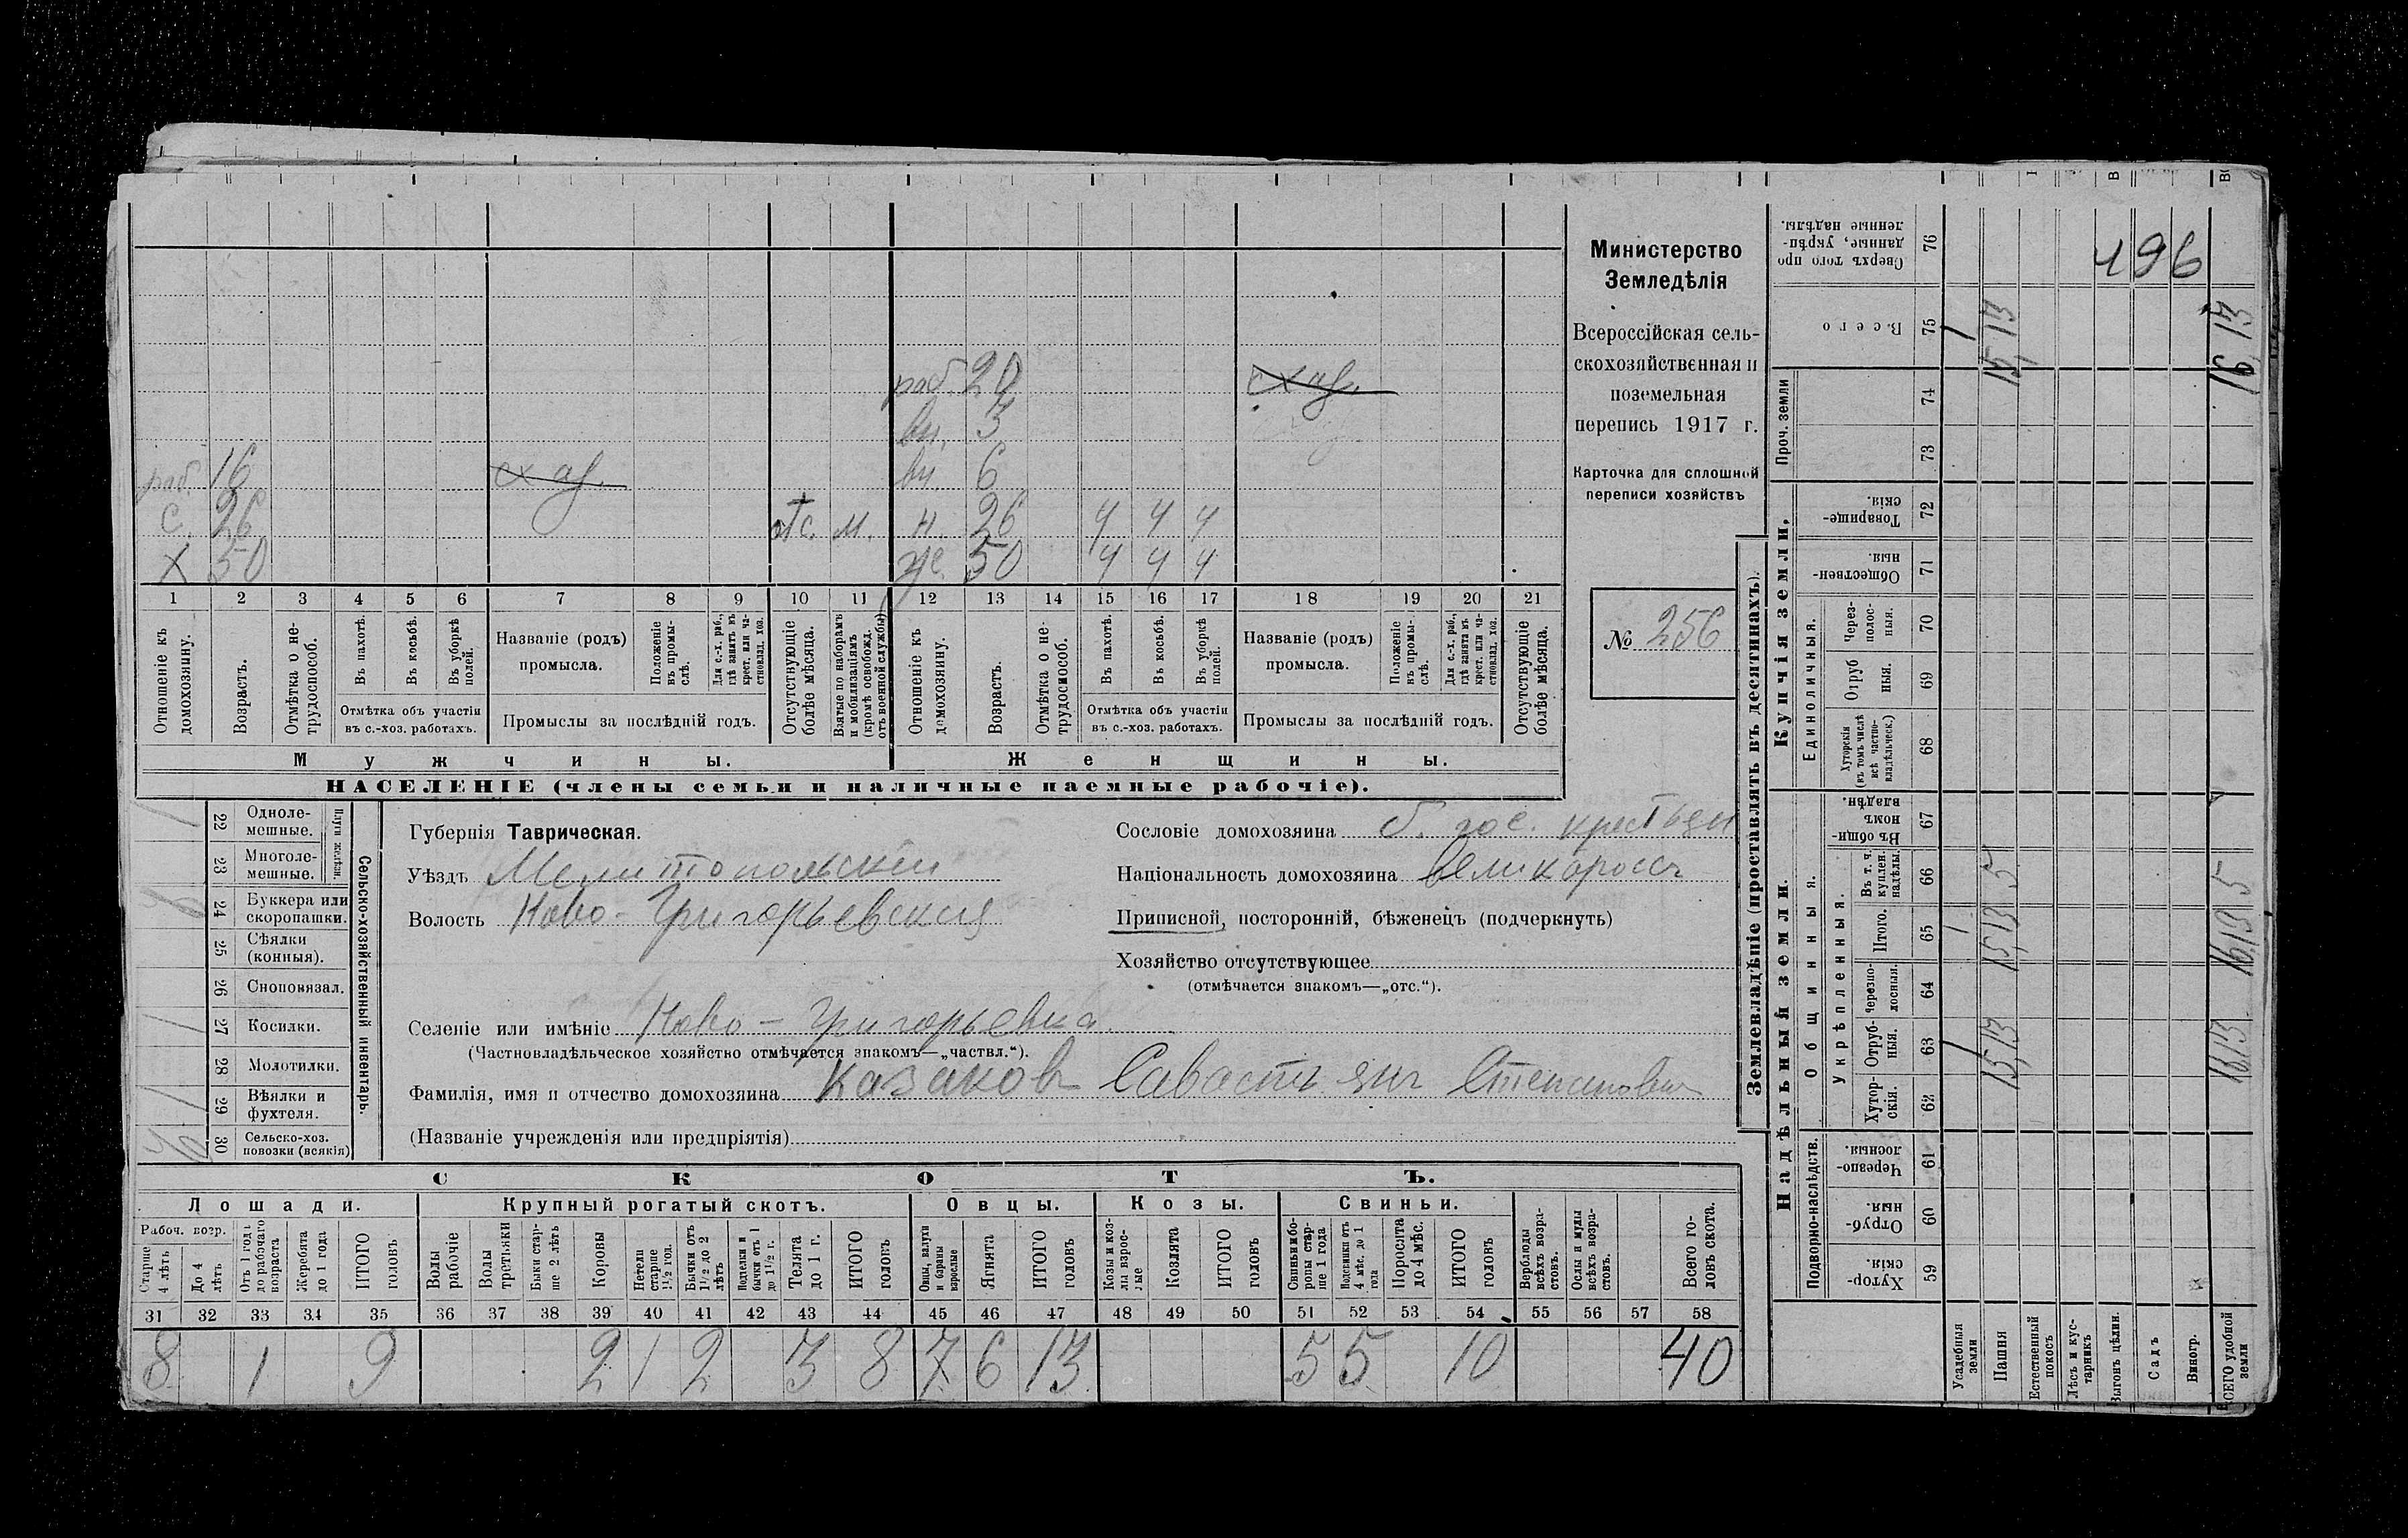 Министерство
Земледѣлія
Всероссійская сель-
скохозяйственная и
поземельная
перепись 1917 г.
Карточка для сплошной
переписи хозяйствъ
№ 256
раб. 20
сх аг.
вн. 3
раб. 16
сх аг.
вн 6
С. 26
отс. м.
н. 26 ч ч ч
Х 50
же. 50 ч ч ч
1 2 3 4 5 6 7 8 9 10 11 12 13 14 15 16 17 18 19 20 21
Отношеніе къ домохозяину.
Возрастъ.
Отмѣтка о не-трудоспособ.
Въ пахотѣ.
Въ косьбѣ.
Въ уборкѣ полей.
Отмѣтка объ участіи въ с.-хоз. работахъ.
Названіе (родъ) промысла.
Положеніе въ промы-слѣ.
Для с.-х. раб., гдѣ занятъ въ крест. или ча-стновлад. хоз.
Промыслы за послѣдній годъ.
Отсутствующіе болѣе мѣсяца.
Взятые по наборамъ и мобилизаціямъ (кромѣ освобожд. отъ военной службы)
Отношеніе къ домохозяину.
Возрастъ.
Отмѣтка о не-трудоспособ.
Въ пахотѣ.
Въ косьбѣ.
Въ уборкѣ полей.
Отмѣтка объ участіи въ с.-хоз. работахъ.
Названіе (родъ) промысла.
Положеніе въ промы-слѣ.
Для с.-х. раб., гдѣ занята въ крест. или ча-стновлад. хоз.
Промыслы за послѣдній годъ.
Отсутствующіе болѣе мѣсяца.
Мужчины.
Женщины.
НАСЕЛЕНІЕ (члены семьи и наличные наемные рабочіе).
Сельско-хозяйственный инвентарь.
Плуги желѣзн.
22 Одноле-мешные. 1
23 Многоле-мешные.
24 Буккера или скоропашки.
25 Сѣялки (конныя).
26 Сноповязал.
27 Косилки. 1
28 Молотилки.
29 Вѣялки и фухтеля. 1
30 Сельско-хоз. повозки (всякія)
Губернія Таврическая.
Уѣздъ Мелитопольскій
Волость Ново-Григорьевская
Сословіе домохозяина б. гос. крестьян
Національность домохозяина великоросъ
Приписной, посторонній, бѣженецъ (подчеркнуть)
Хозяйство отсутствующее
(отмѣчается знакомъ—„отс.“).
Селеніе или имѣніе Ново-Григорьевка.
(Частновладѣльческое хозяйство отмѣчается знакомъ—„частвл.“).
Фамилія, имя и отчество домохозяина Казаковъ Савастьянъ Степановичъ
(Названіе учрежденія или предпріятія)
СКОТЪ.
Лошади. Крупный рогатый скотъ. Овцы. Козы. Свиньи.
Рабоч. возр.
Старше 4 лѣтъ
До 4 лѣтъ
Отъ 1 года до рабочаго возраста
Жеребята до 1 года
ИТОГО головъ
Волы рабочіе
Волы третьяки
Быки стар-ше 2 лѣтъ
Коровы
Нетели старше 1½ год.
Бычки отъ 1½ до 2 лѣтъ
Подтелки и бычки отъ 1 до 1½ г.
Телята до 1 г.
ИТОГО головъ
Овцы, валухи и бараны взрослые
Ягнята
ИТОГО головъ
Козы и коз-лы взрос-лые
Козлята
ИТОГО головъ
Свиньи и бо-ровы стар-ше 1 года
Подсвинки отъ 4 мѣс. до 1 года
Поросята до 4 мѣс.
ИТОГО головъ
Верблюды всѣхъ возра-стовъ.
Ослы и мулы всѣхъ возра-стовъ.
Всего го-ловъ скота.
31 32 33 34 35 36 37 38 39 40 41 42 43 44 45 46 47 48 49 50 51 52 53 54 55 56 57 58
8 1 9 2 1 2 3 8 7 6 13 5 5 10 40
Землевладѣніе (проставлять въ десятинахъ).
Надѣльныя земли.
Купчія земли.
Проч. земли
Подворно-наслѣдств.
Общинныя.
Укрѣпленныя.
Единоличныя.
Сверхъ того про данные, укрѣп-ленные надѣлы. 76
Всего 75
74
73
Товарище-скія. 72
Обществен-ныя. 71
Через-полос-ныя. 70
Отруб ныя. 69
Хуторскія (въ томъ числѣ всѣ частно-владѣльческ.) 68
Въ общин-номъ владѣн. 67
Въ т. ч. куплен. надѣлы. 66
Итого. 65
Черезпо-лосныя. 64
Отруб-ныя. 63
Хутор-скія. 62
Черезпо-лосныя. 61
Отруб-ныя. 60
Хутор-скія. 59
Усадебныя земли
Пашня
Естественный покосъ
Лѣсъ и кус-тарникъ
Выгонъ цѣлин.
Садъ
Виногр.
ВСЕГО удобной земли
1 1 1
15,13 15,13 5 15,13
16,13 16,13 5 16,13
496